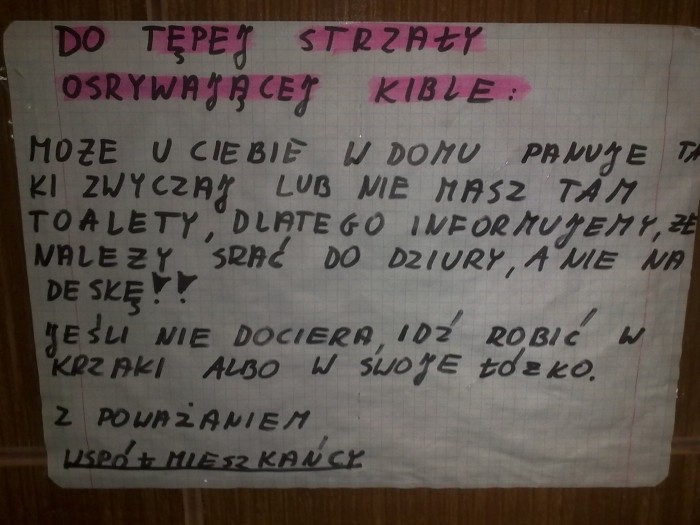 DO TĘPEJ STRZAŁY
OSRYWAJĄCEJ KIBLE:
MOŻE U CIEBIE W DOMU PANUJE TA
KI ZWYCZAJ LUB NIE MASZ TAM
TOALETY, DLATEGO INFORMUJEMY, ŻE
NALEŻY SRAĆ DO DZIURY, A NIE NA
DESKĘ!!
JEŚLI NIE DOCIERA, IDŹ ROBIĆ W
KRZAKI ALBO W SWOJE ŁÓŻKO.
Z POWAŻANIEM
WSPÓŁMIESZKAŃCY